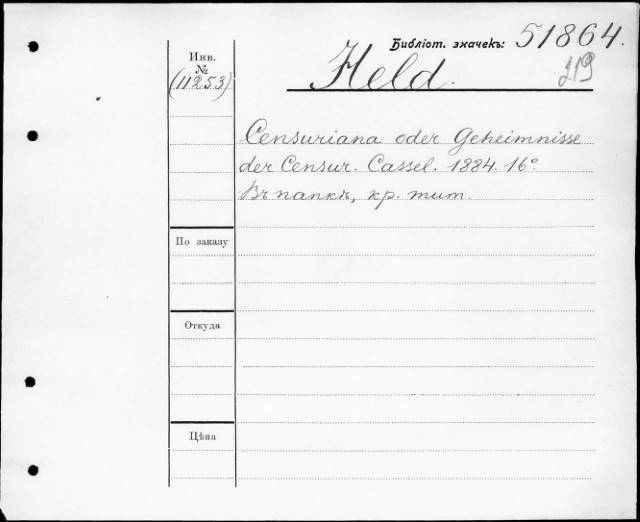 Библіот. значекъ: 51864.
Инв.
№
(11253)
Held.
119
Censuriana oder Geheimnisse
der Censur. Cassel. 1884. 16°.
Въ папкѣ, кр. тит.
По заказу
Откуда
Цѣна